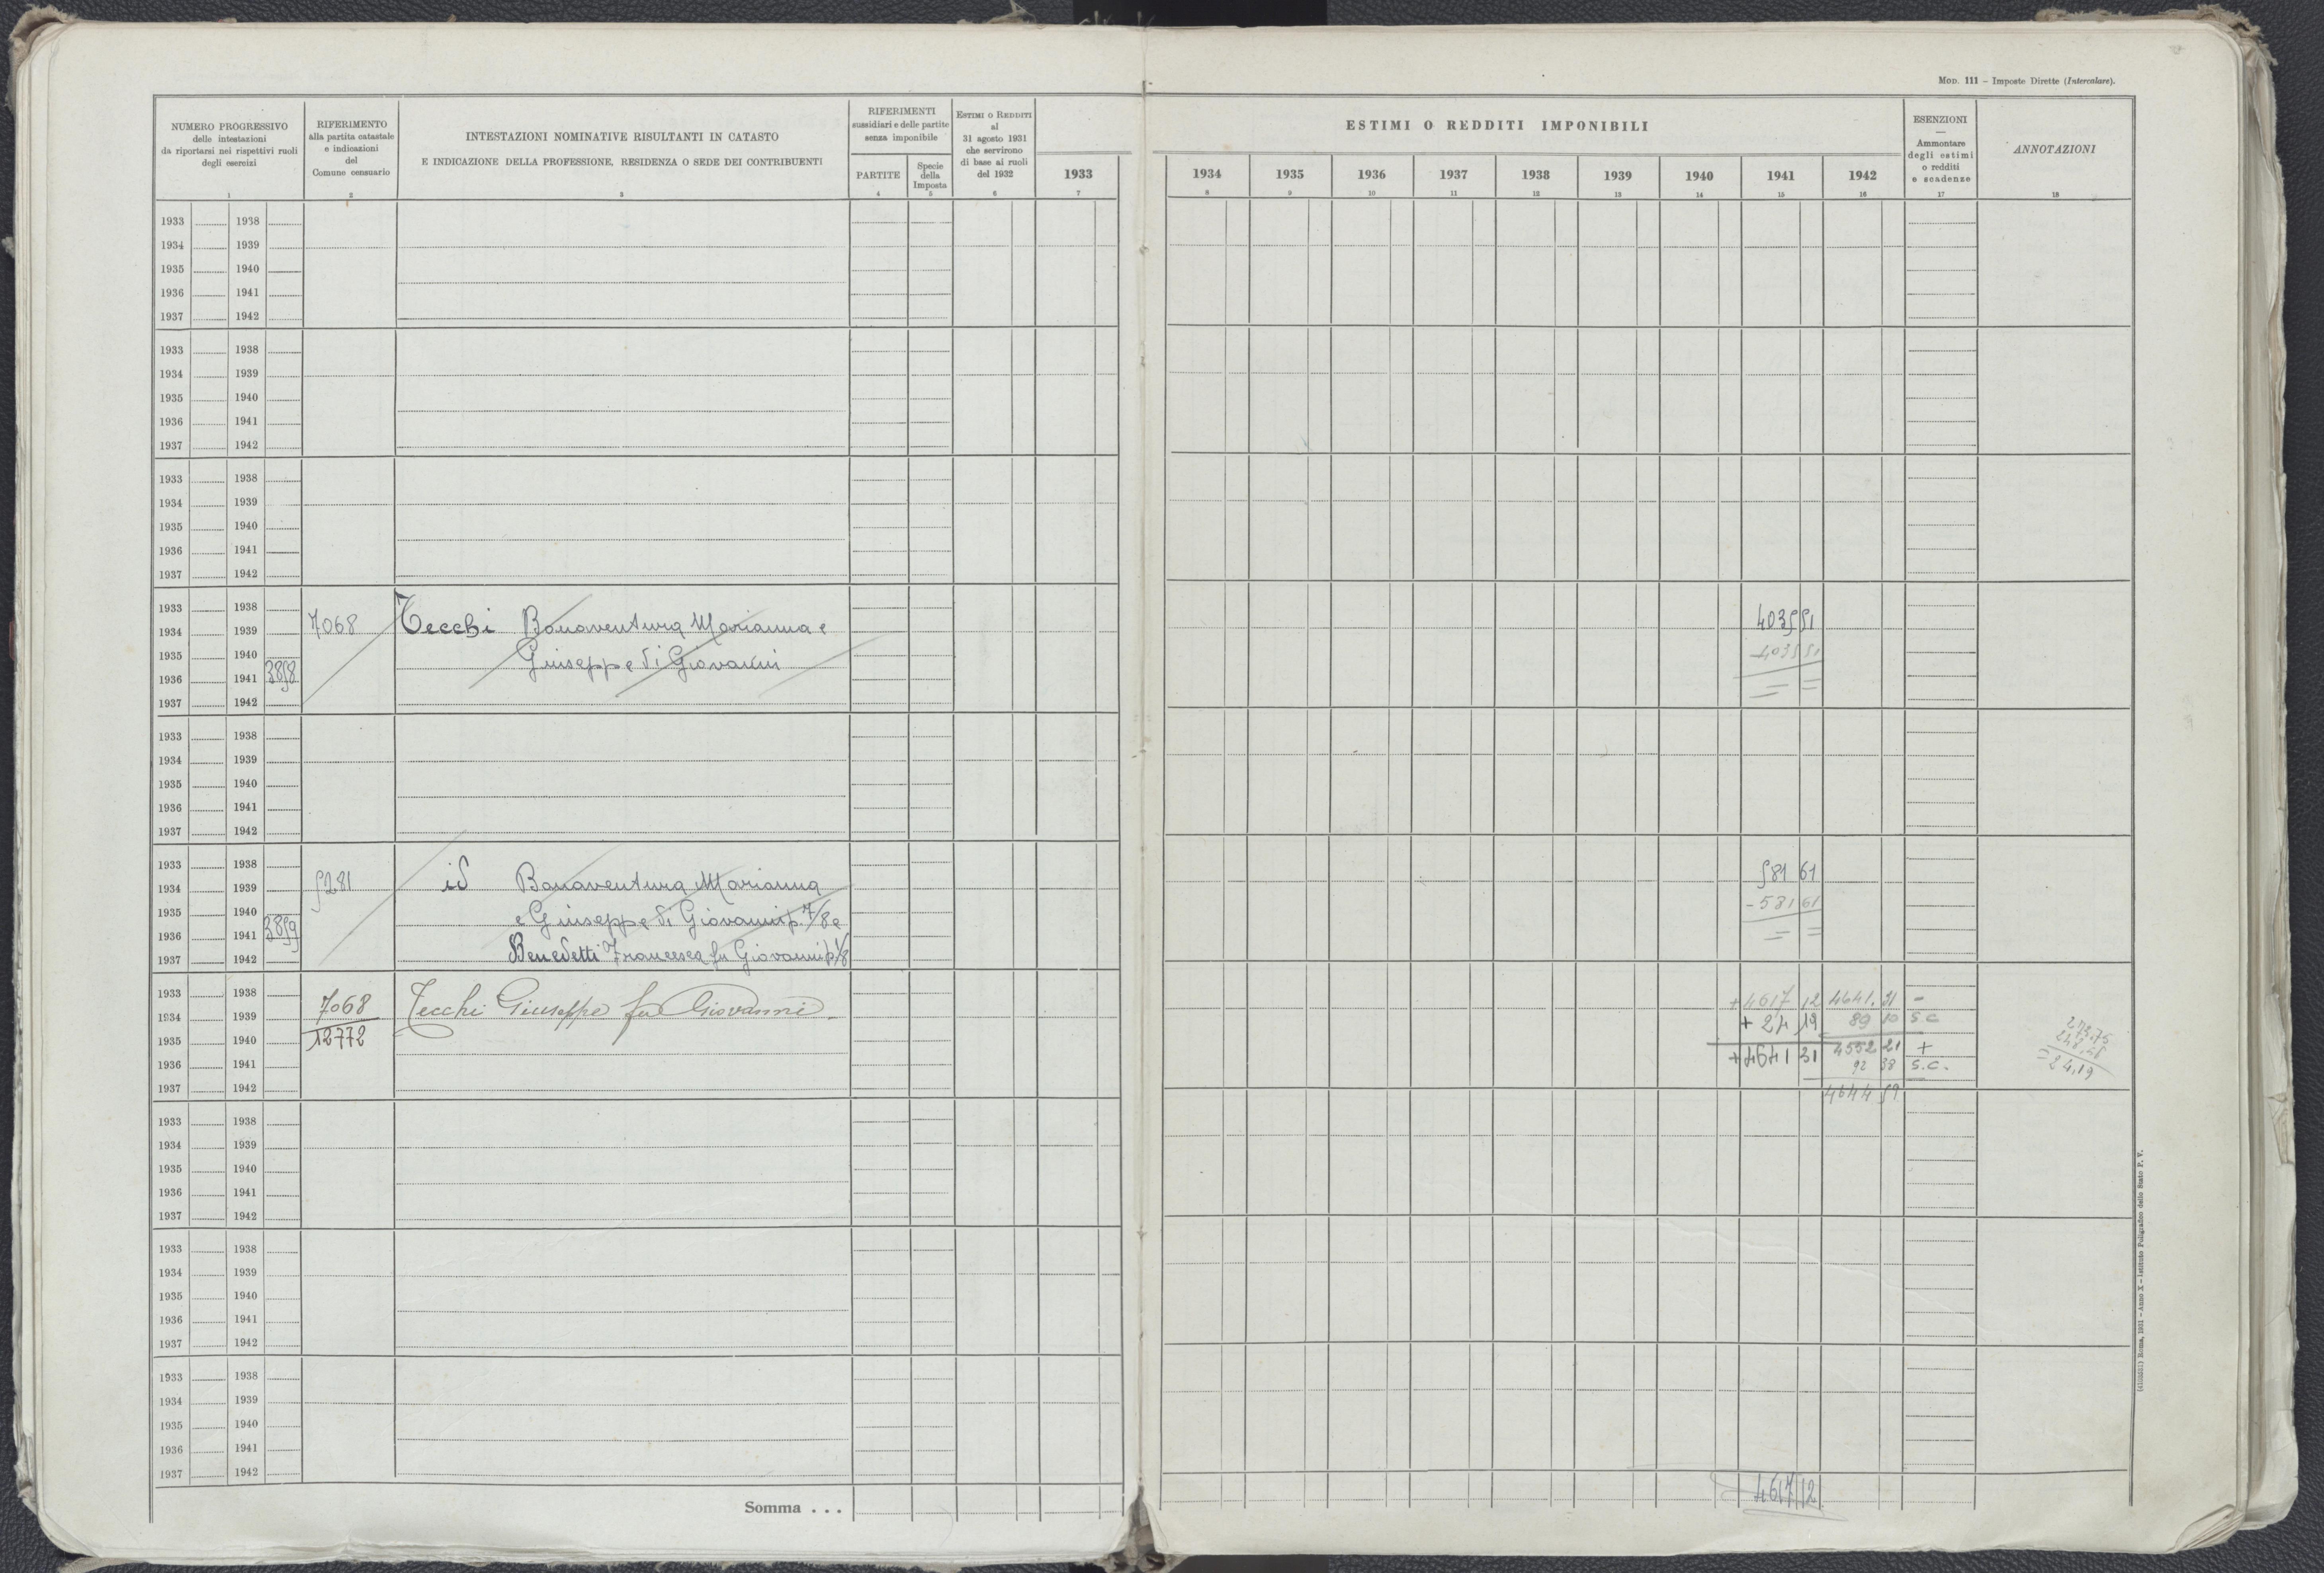 MOD. 111 – Imposte Dirette (Intercalare).
NUMERO PROGRESSIVO
delle intestazioni
da riportarsi nei rispettivi ruoli
degli esercizi
1
RIFERIMENTO
alla partita catastale
e indicazioni
del
Comune censuario
2
INTESTAZIONI NOMINATIVE RISULTANTI IN CATASTO
E INDICAZIONE DELLA PROFESSIONE, RESIDENZA O SEDE DEI CONTRIBUENTI
3
RIFERIMENTI
sussidiari e delle partite
senza imponibile
PARTITE
4
Specie
della
Imposta
5
ESTIMI O REDDITI
al
31 agosto 1931
che servirono
di base ai ruoli
del 1932
6
ESTIMI O REDDITI IMPONIBILI
1933 1934 1935 1936 1937 1938 1939 1940 1941 1942
7 8 9 10 11 12 13 14 15 16
ESENZIONI
—
Ammontare
degli estimi
o redditi
e scadenze
17
ANNOTAZIONI
18
1933 1938
1934 1939
1935 1940
1936 1941
1937 1942
1933 1938
1934 1939
1935 1940
1936 1941
1937 1942
1933 1938
1934 1939
1935 1940
1936 1941
1937 1942
1933 1938
1934 1939 7068 Tecchi Bonaventura Marianna e 4035 51
1935 1940 Giuseppe di Giovanni - 4035 51
1936 1941 3858 = =
1937 1942
1933 1938
1934 1939
1935 1940
1936 1941
1937 1942
1933 1938
1934 1939 5281 id Bonaventura Marianna 581 61
1935 1940 e Giuseppe di Giovanni p. 7/8 e - 581 61
1936 1941 3859 = =
1937 1942 Benedetti Francesca fu Giovanni p 1/8
1933 1938 7068 Tecchi Giuseppe fu Giovanni + 4617 12 4641. 31 -
1934 1939 + 24 19 89 10 S.C
1935 1940 12772 + 4641 31 4552 21 +
1936 1941 92 38 S.C.
1937 1942 4644 59
= 24,19
1933 1938
1934 1939
1935 1940
1936 1941
1937 1942
1933 1938
1934 1939
1935 1940
1936 1941
1937 1942
1933 1938
1934 1939
1935 1940
1936 1941
1937 1942
Somma . . . 4617 12
(4103551) Roma, 1931 – Anno X – Istituto Poligrafico dello Stato P. V.